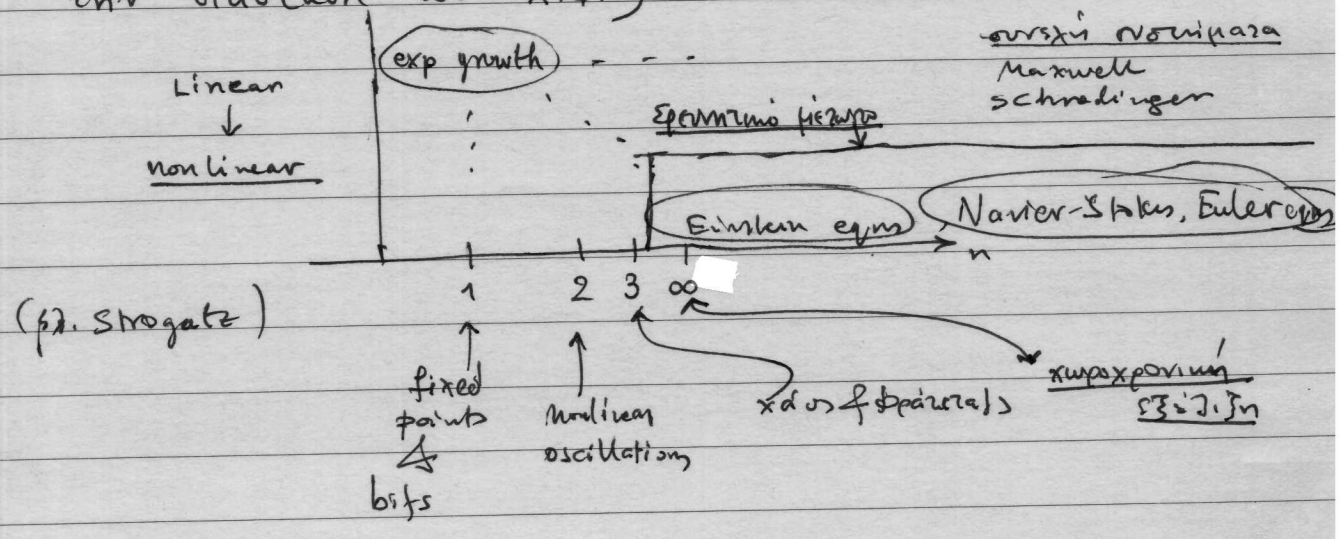 exp growth
συνεχή συστήματα
Maxwell
Schrodinger
Linear
ερευνητικό μέτωπο
nonlinear
Einstein eqns
Navier-Stokes, Euler eqns
n
1 2 3 ∞
(βλ. Strogatz)
fixed
points
&
bifs
nonlinear
oscillations
χάος & φράκταλς
χωροχρονική
εξέλιξη